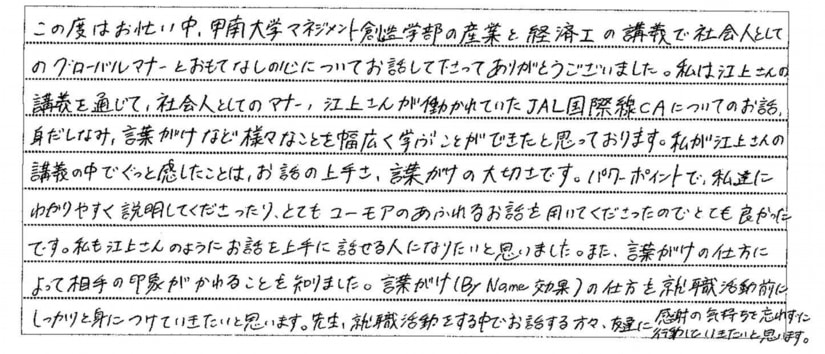 この度はお忙い中、甲南大学マネジメント創造学部の産業と経済Ⅰの講義で社会人として
のグローバルマナーとおもてなしの心についてお話して下さってありがとうございました。私は江上さんの
講義を通じて、社会人としてのマナー、江上さんが働かれていたJAL国際線CAについてのお話、
身だしなみ、言葉がけなど様々なことを幅広く学ぶことができたと思っております。私が江上さんの
講義の中でぐっと感じたことは、お話の上手さ、言葉がけの大切さです。パワーポイントで、私達に
わかりやすく説明してくださったり、とてもユーモアのあふれるお話を用いてくださったのでとても良かった
です。私も江上さんのようにお話を上手に話せる人になりたいと思いました。また、言葉がけの仕方に
よって相手の印象がかわることを知りました。言葉がけ(By Name 効果)の仕方を就職活動前に
しっかりと身につけていきたいと思います。先生、就職活動をする中でお話する方々、友達に感謝の気持ちを忘れずに
行動していきたいと思います。